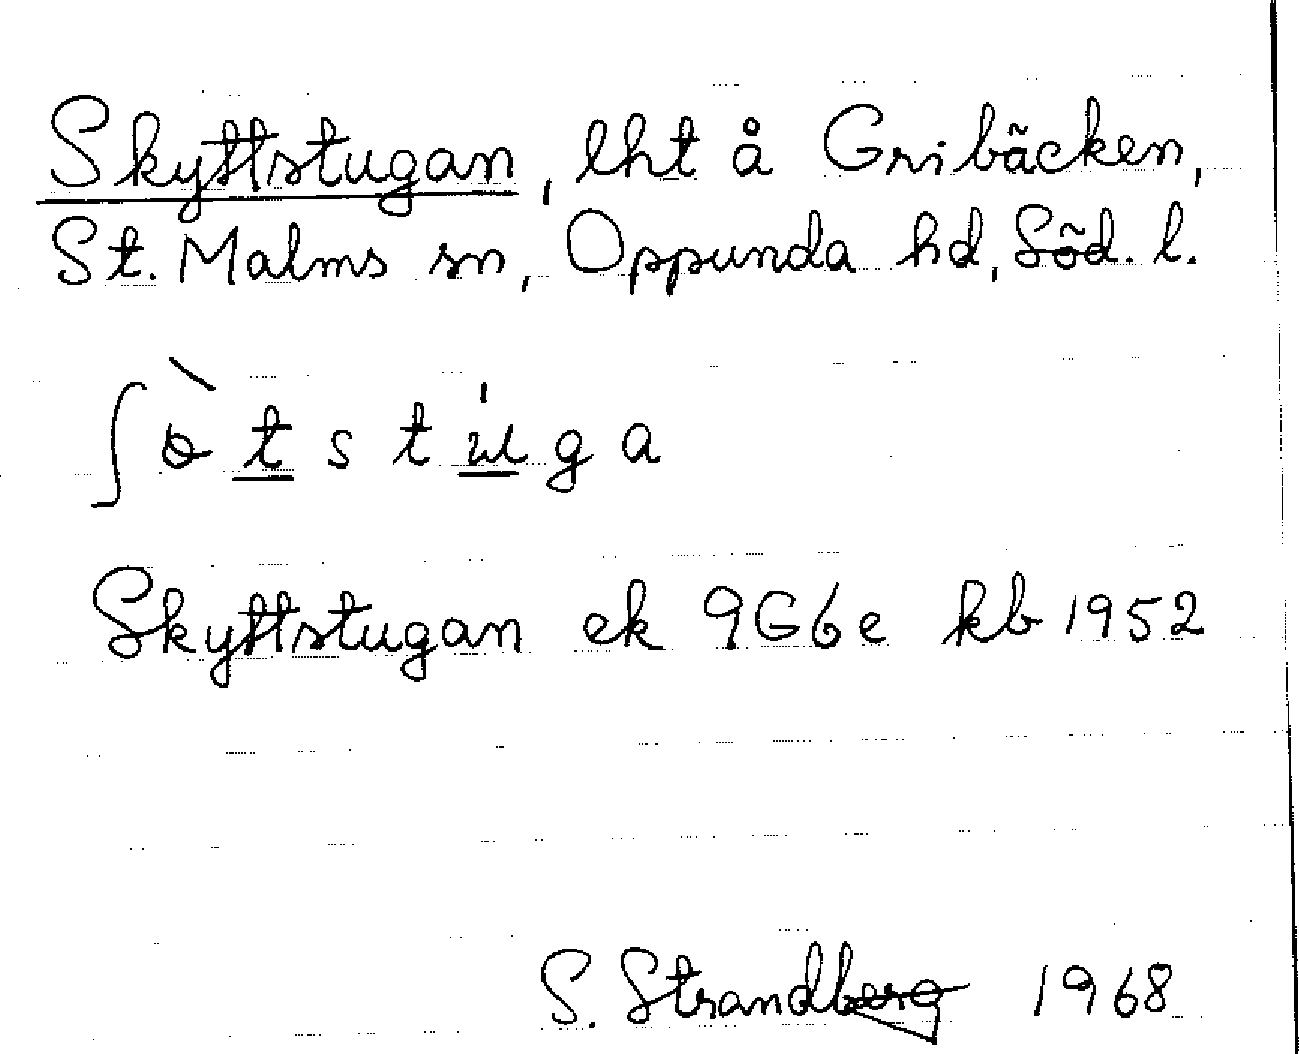 Skyttstugan, lht å Gribäcken,
St. Malms sn, Oppunda hd, Söd. l.
ʃɵ̀tstu̇ga
Skyttstugan ek 9G6e kb 1952
S. Strandberg 1968